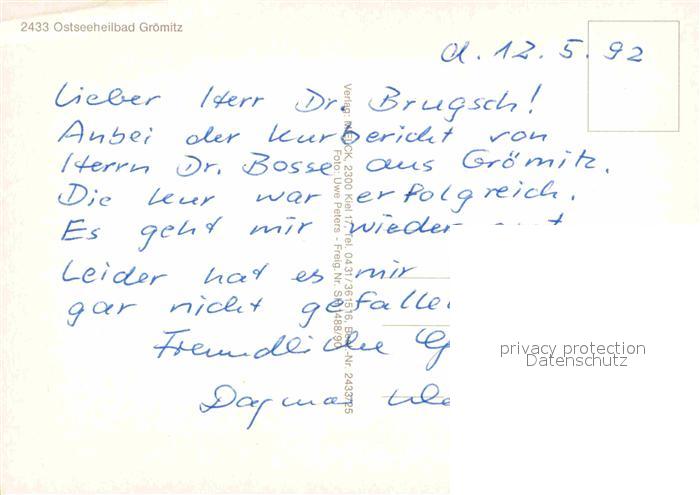 2433 Ostseeheilbad Grömitz
d. 12. 5. 92
Lieber Herr Dr. Brugsch!
Anbei der Kurbericht von
Herrn Dr. Bosse aus Grömitz.
Die Kur war erfolgreich.
Es geht mir wieder
Leider hat es mir
gar nicht
Freundliche
Dagmar
Verlag: 2300 Kiel 17, Tel. 0431/361516, Best.-Nr. 2433725
Foto: Uwe Peters - Freig.Nr. SH 1488/90
privacy protection
Datenschutz